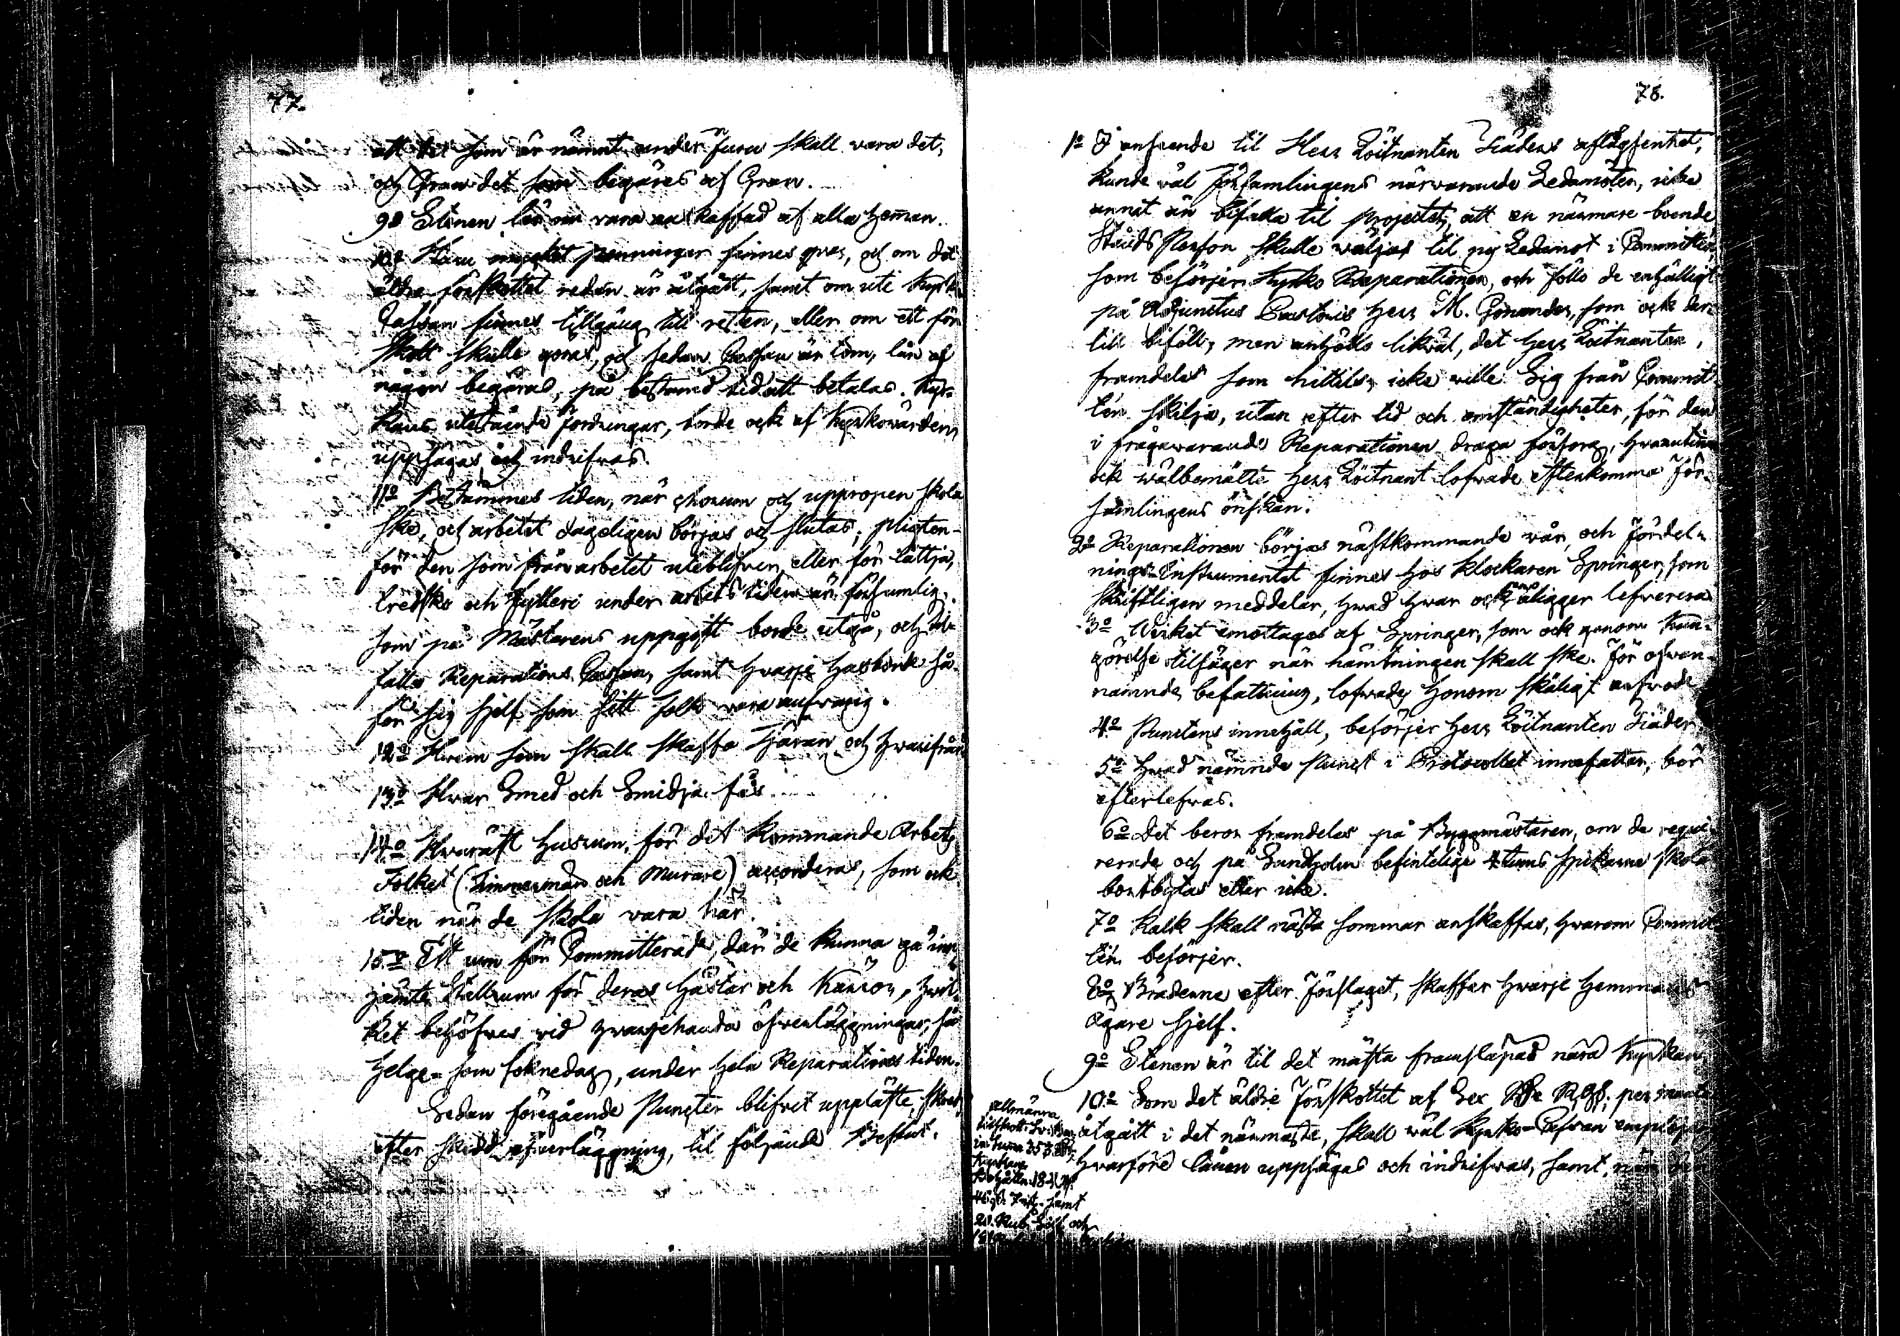 77.
att det som är nämnt under Fura skall vara det,
och Gran det som begäres af Gran.
9o Stenen lär nu vara anskaffad af alla Hemman.
10o Huru mycket penningar finnes qvar, och om det
äldre förskottet redan är åtgått, samt om uti Kyrko
Cassan finnes tillgång till resten, eller om ett för
skott skulle göras, och sedan Cassan är tom, lån af
någon begäras, på bestämd tid att betalas. Kyr-
kans utestående fordringar, borde ock af Kyrkovärden
uppsägas och indrifvas.
11o Bestämmes tiden, när och uppropen skola
ske, och arbetet dageligen börjas och slutas; plikten
för den som från arbetet uteblifver, eller för lättja,
tredsko och fylleri under arbetstiden är försumlig,
som på Mästarens uppgift borde utgå, och
falla Reparations Cassan, samt hvarje Husbonde så
för sig sjelf som sitt folk vara ansvarig.
12o Hvem som skall skaffa Tjäran och hvarifrån
13o Hvar Smed och Smidja fås.
14o Hvaräst husrum, för det kommande Arbets
Folket (Timmermän och Murare) accorderas, som ock
tiden när de skola vara här.
15o Ett rum för Committerade, där de kunna gå in,
jämte Stallrum för deras Hästar och Kärror, hvil-
ket behöfves vid hvarjehanda öfverläggningar, så
Helge- som söknedag, under hela Reparations tiden.
Sedan föregående Puncter blifvit uppläste, skred,
efter skedd öfverläggning, til följande Beslut.
78.
1o I anseende til Herr Löitnanten Fiäders aflägsenhet,
kunde väl Församlingens närvarande Ledamöter, icke
annat än bifalla til projectet, att en närmare boende
Stånds Person skulle väljas til ny Ledamot i Committén,
som besörjer Kyrko Reparationen, och föllo de enhälligt
på Adjunctus Pastoris Herr M. som ock der
till biföll, men anhölls likväl, det Herr Löitnanten,
framdeles som hittils, icke ville Sig från Commit
tén skilja, utan efter tid och omständigheter, för den
i frågavarande Reparationen draga försorg, hvarutinnan
ock välbemälte Herr Löitnant lofvade efterkomma För-
samlingens önskan.
2o Reparationen börjas nästkommande vår, och Fördel-
nings-Instrumentet finnes hos Klockaren Springer, som
skriftligen meddelar, hvad hvar och en åligger lefverera
3o Virket emottages af Springer, som ock genom Kun-
görelse tilsäger när hämtningen skall ske. För ofvan-
nämnde befattning, lofvades honom skäligt arfvode
4o Punctens innehåll, besörjer Herr Löitnanten Fiäder.
5o Hvad nämnde Punct i Protocollet innefattar, bör
efterlefvas.
6o Det beror framdeles på Byggmästaren, om de requi-
rerade och på Sundholm befintelige 4 tums spikarne skola
bortbytas eller icke.
7o Kalk skall nästa sommar anskaffas, hvarom Commit
tén besörjer.
8o Bräderne efter Förslaget, skaffar hvarje Hemmans
ägare sjelf.
9o Stenen är til det mästa framsläpad nära Kyrkan.
10o Som det äldre Förskottet af Sex
åtgått i det närmaste, skall väl Kyrko-Cassan employeras
hvarföre lånen uppsägas och indrifvas, samt, när den
allmänna
samt
och